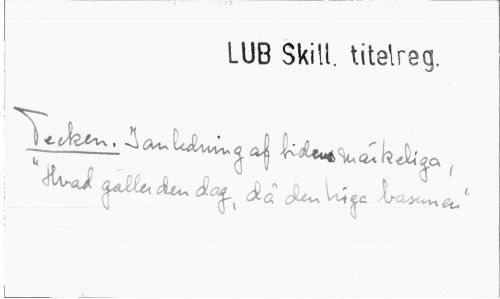 LUB Skill. titelreg.
Tecken. I anledning af tidens märkeliga,
"Hvad gäller den dag, då den höga basunen"